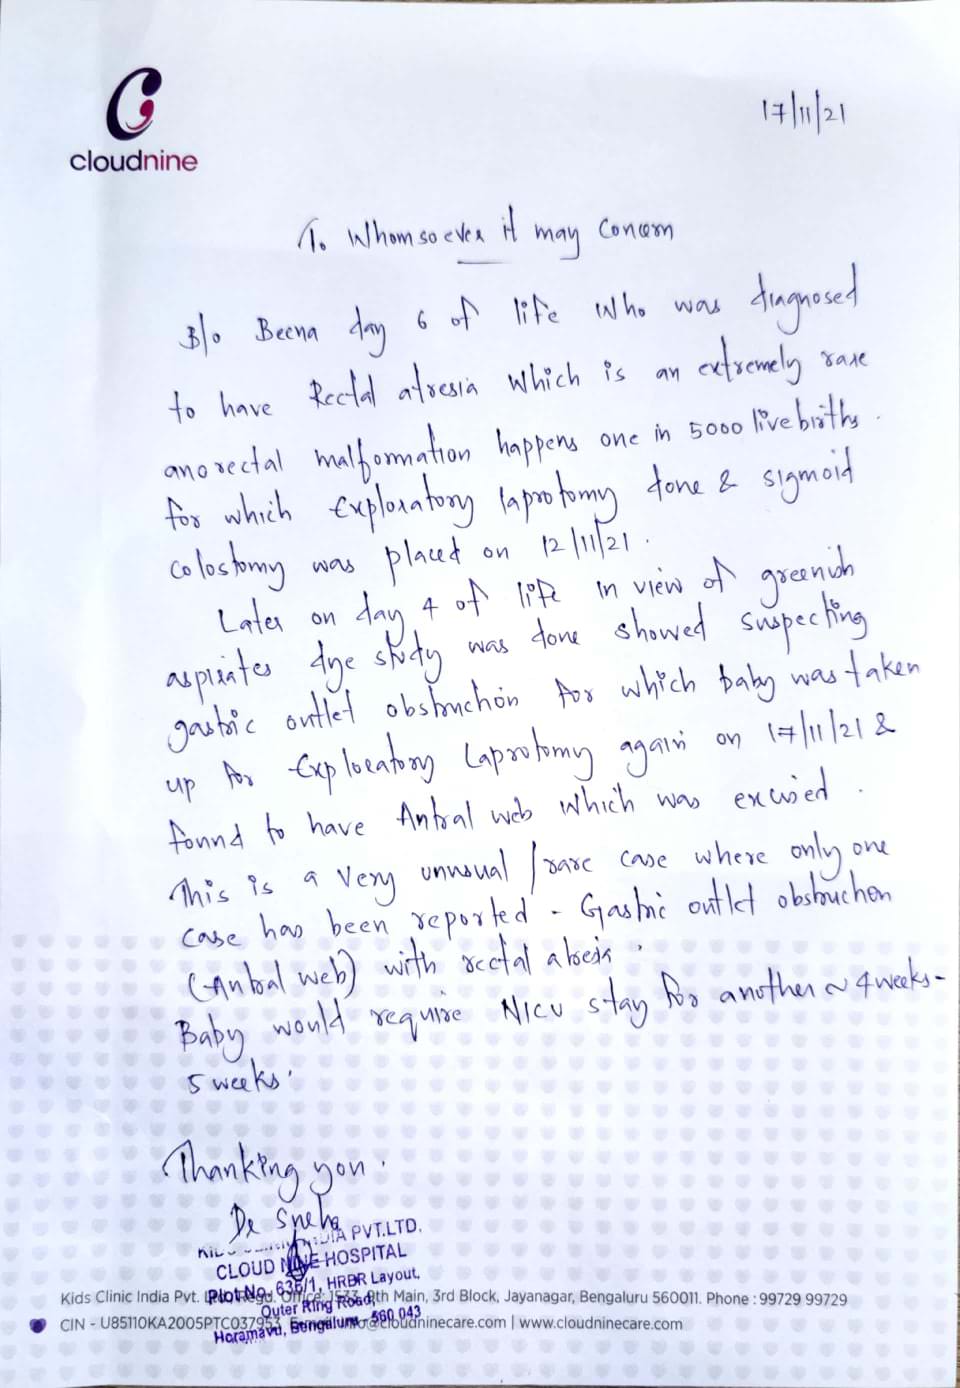 cloudnine
17/11/21
To Whomsoever it may Concern
B/o Beena day 6 of life Who was diagnosed
to have Rectal atresia Which is an extremely rare
anorectal malformation happens one in 5000 live births.
for which Exploratory laprotomy done & sigmoid
colostomy was placed on 12/11/21.
Later on day 4 of life in view of greenish
aspirates dye study was done showed suspecting
gastric outlet obstruction for which baby was taken
up for Exploratory Laprotomy again on 17/11/21 &
found to have Antral web which was excised.
This is a very unusual/rare case where only one
case has been reported - Gastric outlet obstruction
(Antral web) with rectal atresia.
Baby would require NICU stay for another ~ 4 weeks-
5 weeks.
Thanking you.
Dr Sneha
PVT.LTD.
CLOUD NINE HOSPITAL
Plot No. 636/1, HRBR Layout,
Outer Ring Road,
Horamavu, Bengaluru - 560 043
Kids Clinic India Pvt. Main, 3rd Block, Jayanagar, Bengaluru 560011. Phone : 99729 99729
CIN - U85110KA2005PTC037953 @cloudninecare.com | www.cloudninecare.com